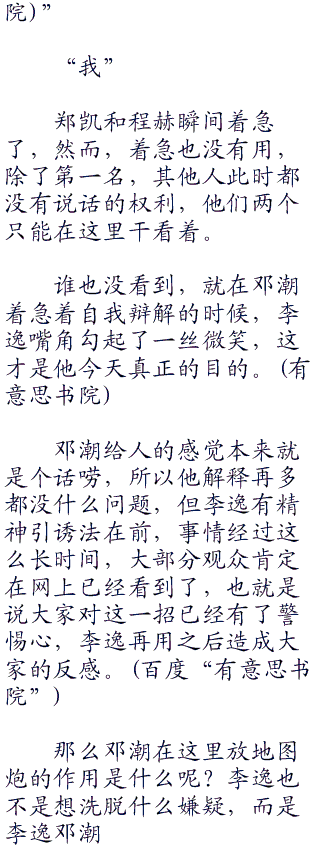 院)”
“我”
郑凯和程赫瞬间着急
了，然而，着急也没有用，
除了第一名，其他人此时都
没有说话的权利，他们两个
只能在这里干看着。
谁也没看到，就在邓潮
着急着自我辩解的时候，李
逸嘴角勾起了一丝微笑，这
才是他今天真正的目的。(有
意思书院)
邓潮给人的感觉本来就
是个话唠，所以他解释再多
都没什么问题，但李逸有精
神引诱法在前，事情经过这
么长时间，大部分观众肯定
在网上已经看到了，也就是
说大家对这一招已经有了警
惕心，李逸再用之后造成大
家的反感。(百度“有意思书
院”)
那么邓潮在这里放地图
炮的作用是什么呢？李逸也
不是想洗脱什么嫌疑，而是
李逸邓潮